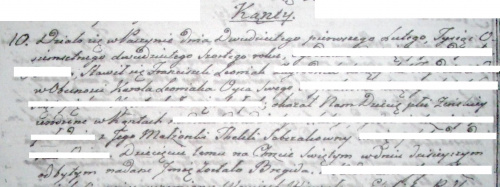 Kanty.
10. Działo się w Raszynie dnia Dwudziestego pierwszego Lutego Tysiąc O
siemsetnego dwudziestego szostego roku
Stawił się Franciszek Leoniak
w Obecności Karola Leoniaka Oyca Swego
okazał Nam Dziecię płci Żeńskiey
urodzone w Kątach
z Jego Małżonki
Dziecięciu temu na Chrzcie Swiętym w dniu dzisieyszym
odbytym nadane Jmię zostało Brygida